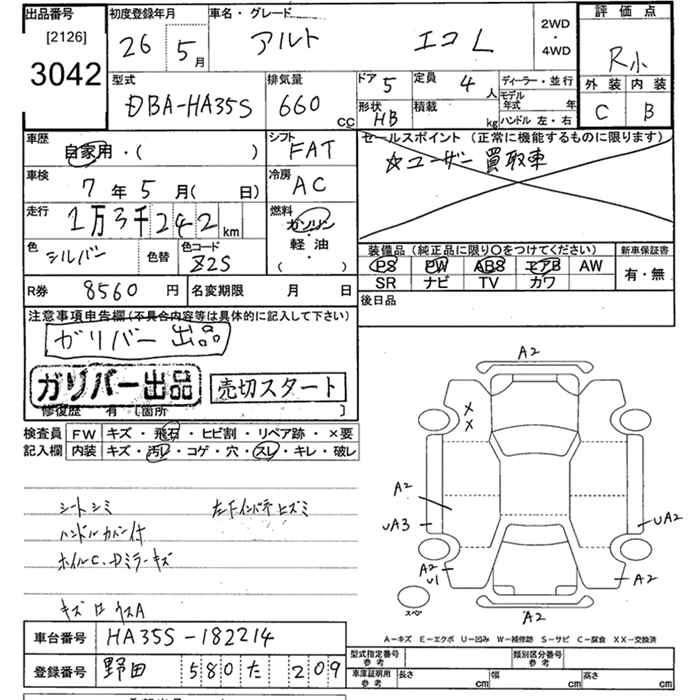 出品番号
[2126]
3042
初度登録年月
26 5月
車名・グレード
アルト エコL
2WD
・
4WD
評価点
R小
外装 内装
C B
型式
DBA-HA35S
排気量
660 cc
ドア 5
形状 HB
定員 4 人
積載 kg
ディーラー・並行
モデル年式 年
ハンドル 左・右
車歴
自家用・( )
シフト
FAT
車検
7年5月( 日)
冷房
AC
走行
1万3千242km
燃料
ガソリン
・
軽油
・
( )
色
シルバー
色替
色コード
Z2S
セールスポイント (正常に機能するものに限ります)
☆ユーザー買取車
装備品 (純正品に限り○をつけてください)
PS PW ABS エアB AW
SR ナビ TV カワ
新車保証書
有・無
R券 8560円
名変期限 月 日
後日品
注意事項申告欄(不具合内容等は具体的に記入して下さい)
ガリバー出品
ガリバー出品
売切スタート
修復歴 有 [箇所 ]
検査員
記入欄
FW キズ・飛石・ヒビ割・リペア跡・×要
内装 キズ・汚レ・コゲ・穴・スレ・キレ・破レ
シートシミ
左下インパネヒズミ
ハンドルカバー付
ホイルC.Dミラーキズ
A2
×
×
A2
UA3
UA2
A2
U1
A2
スペア
A2
A-キズ E-エクボ U-凹み W-補修跡 S-サビ C-腐食 XX-交換済
車台番号 HA35S-182214
登録番号 野田 580 た 209
型式指定番号
参考
類別区分番号
参考
車庫証明用
参考
長さ cm
幅 cm
高さ cm